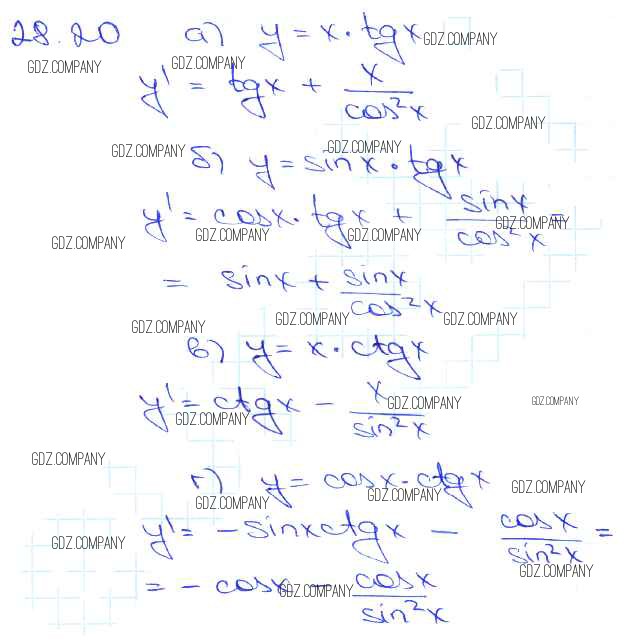 28.20 а) y = x · tgx GDZ.COMPANY
GDZ.COMPANY GDZ.COMPANY
y' = tgx + x/cos²x
GDZ.COMPANY
GDZ.COMPANY б) y = sinx · tgx GDZ.COMPANY
y' = cosx · tgx + sinx/cos²x =
GDZ.COMPANY GDZ.COMPANY GDZ.COMPANY GDZ.COMPANY
= sinx + sinx/cos²x
GDZ.COMPANY GDZ.COMPANY GDZ.COMPANY
в) y = x · ctgx
y' = ctgx − x/sin²x
GDZ.COMPANY GDZ.COMPANY GDZ.COMPANY
GDZ.COMPANY
г) y = cosx · ctgx
GDZ.COMPANY GDZ.COMPANY GDZ.COMPANY
y' = −sinxctgx − cosx/sin²x =
GDZ.COMPANY GDZ.COMPANY
= −cosx − cosx/sin²x
GDZ.COMPANY